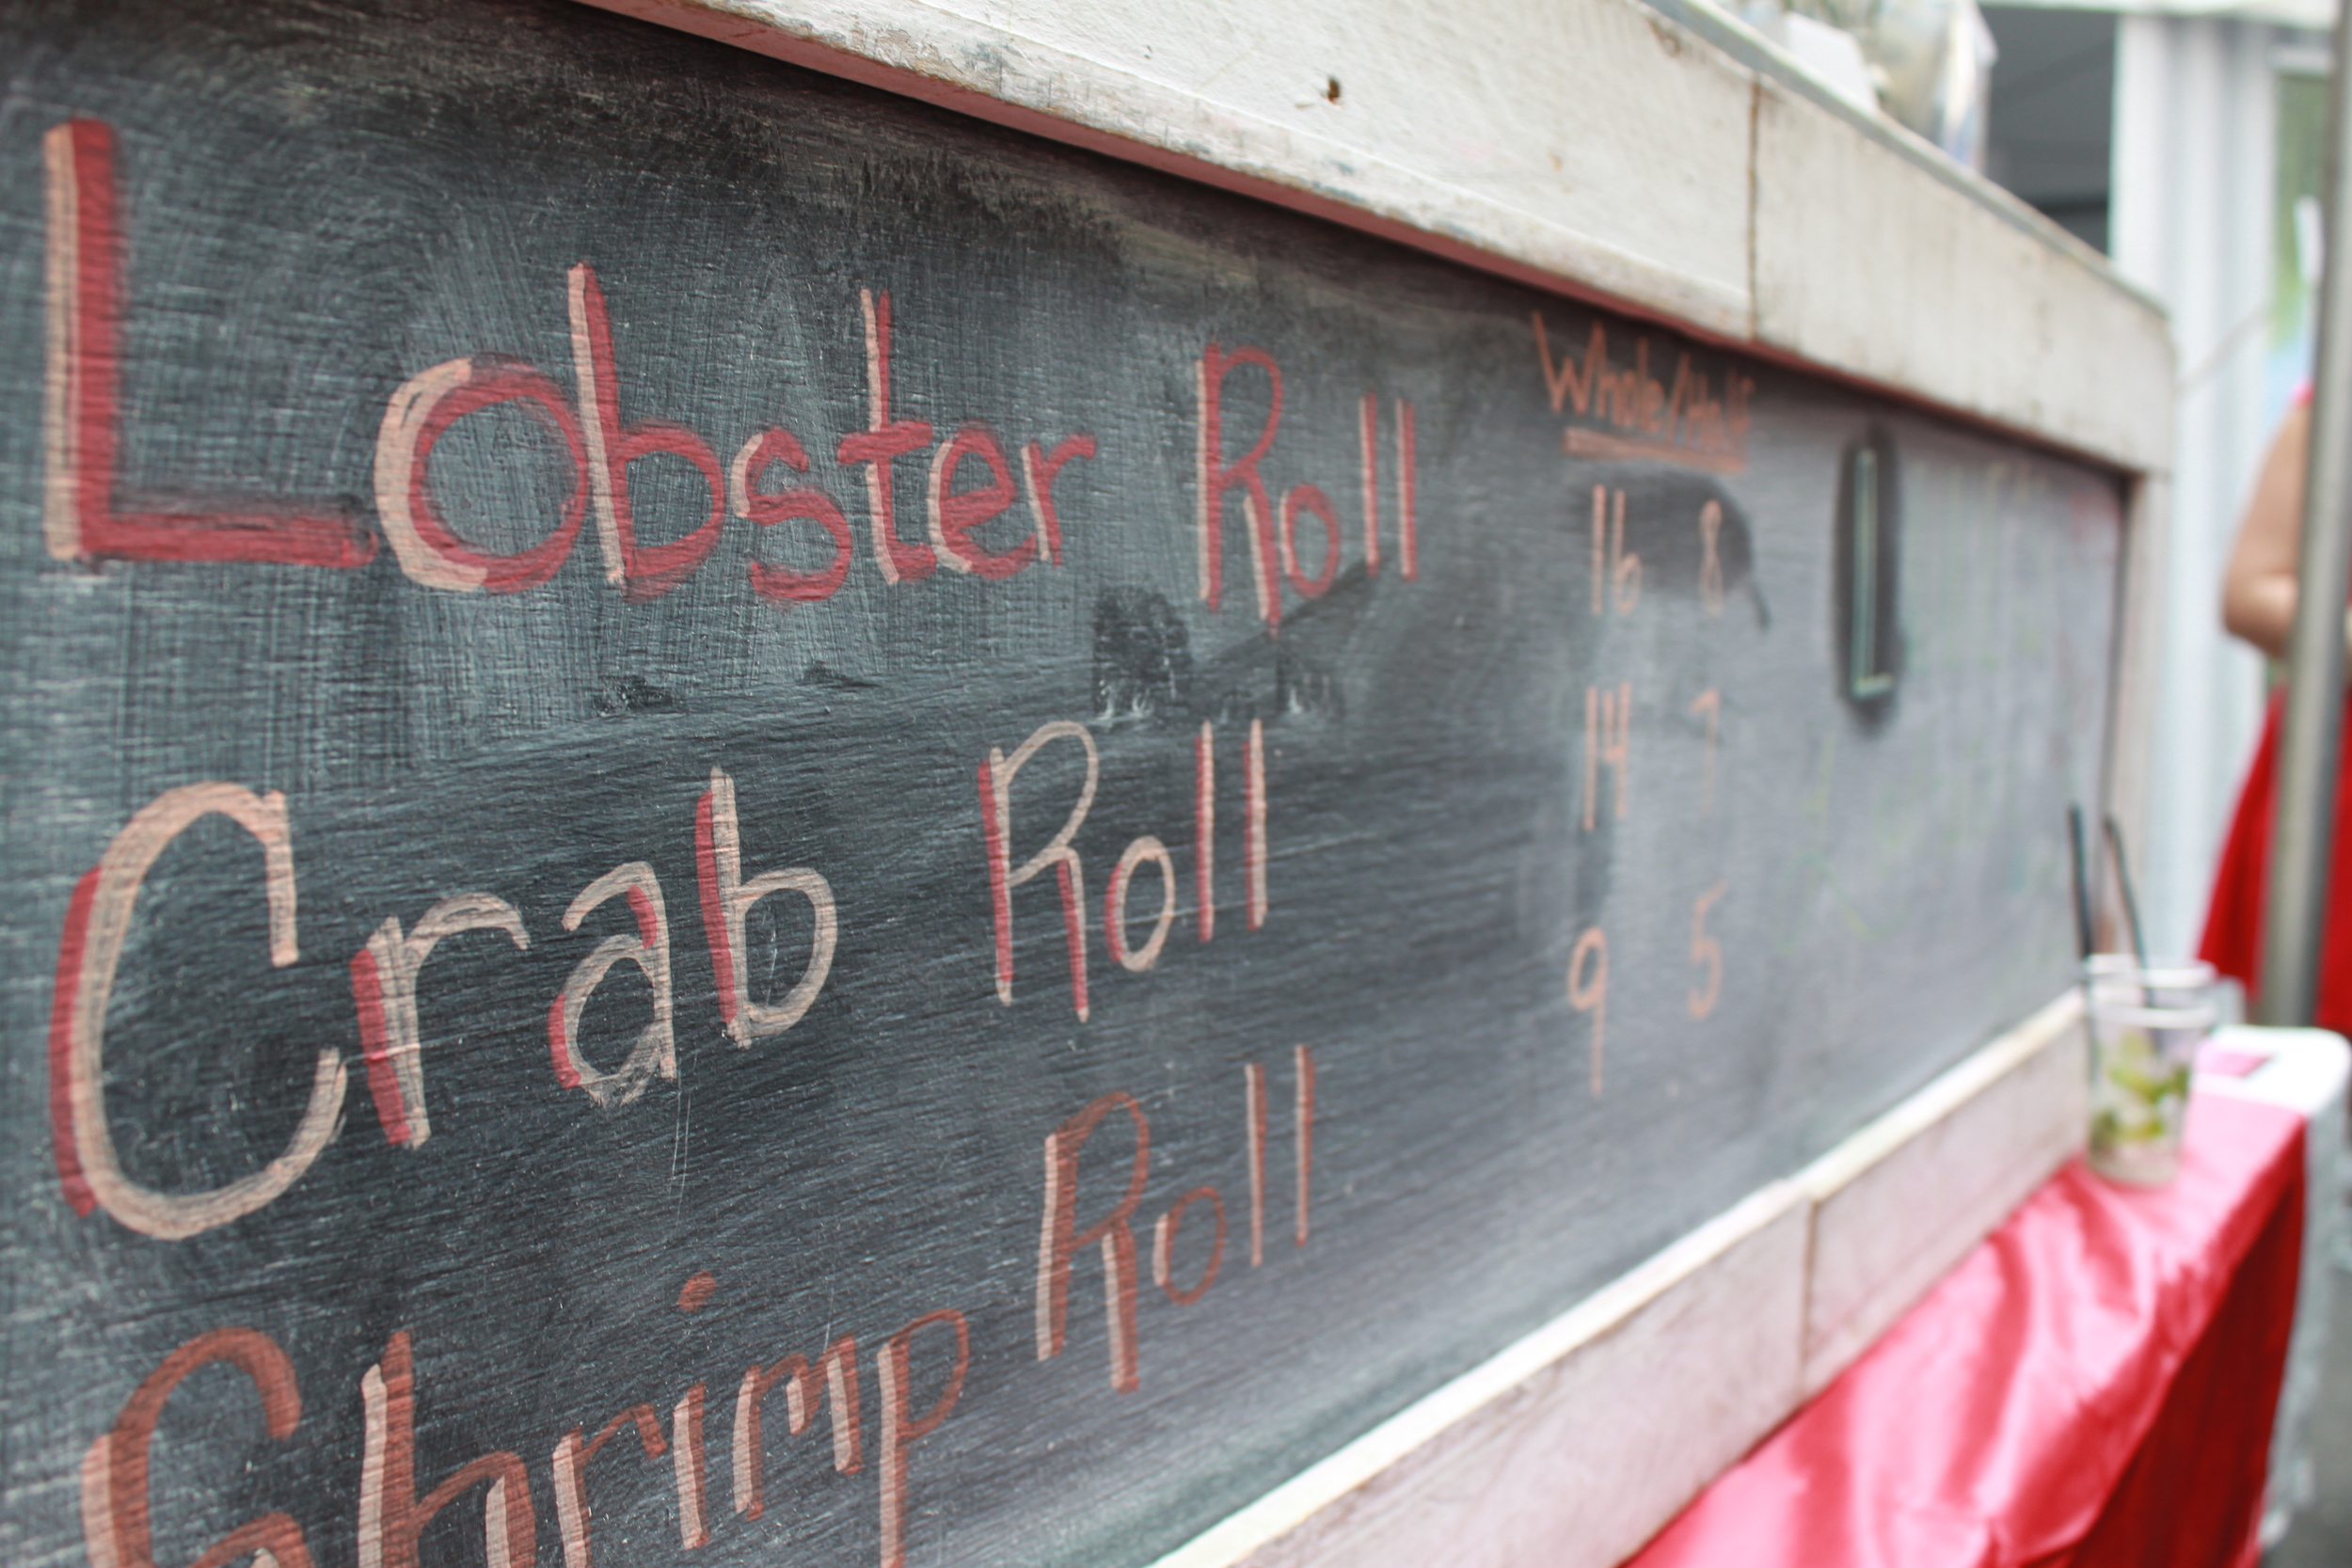 Whole/Half
Lobster Roll 16 8
Crab Roll 14 7
Shrimp Roll 9 5